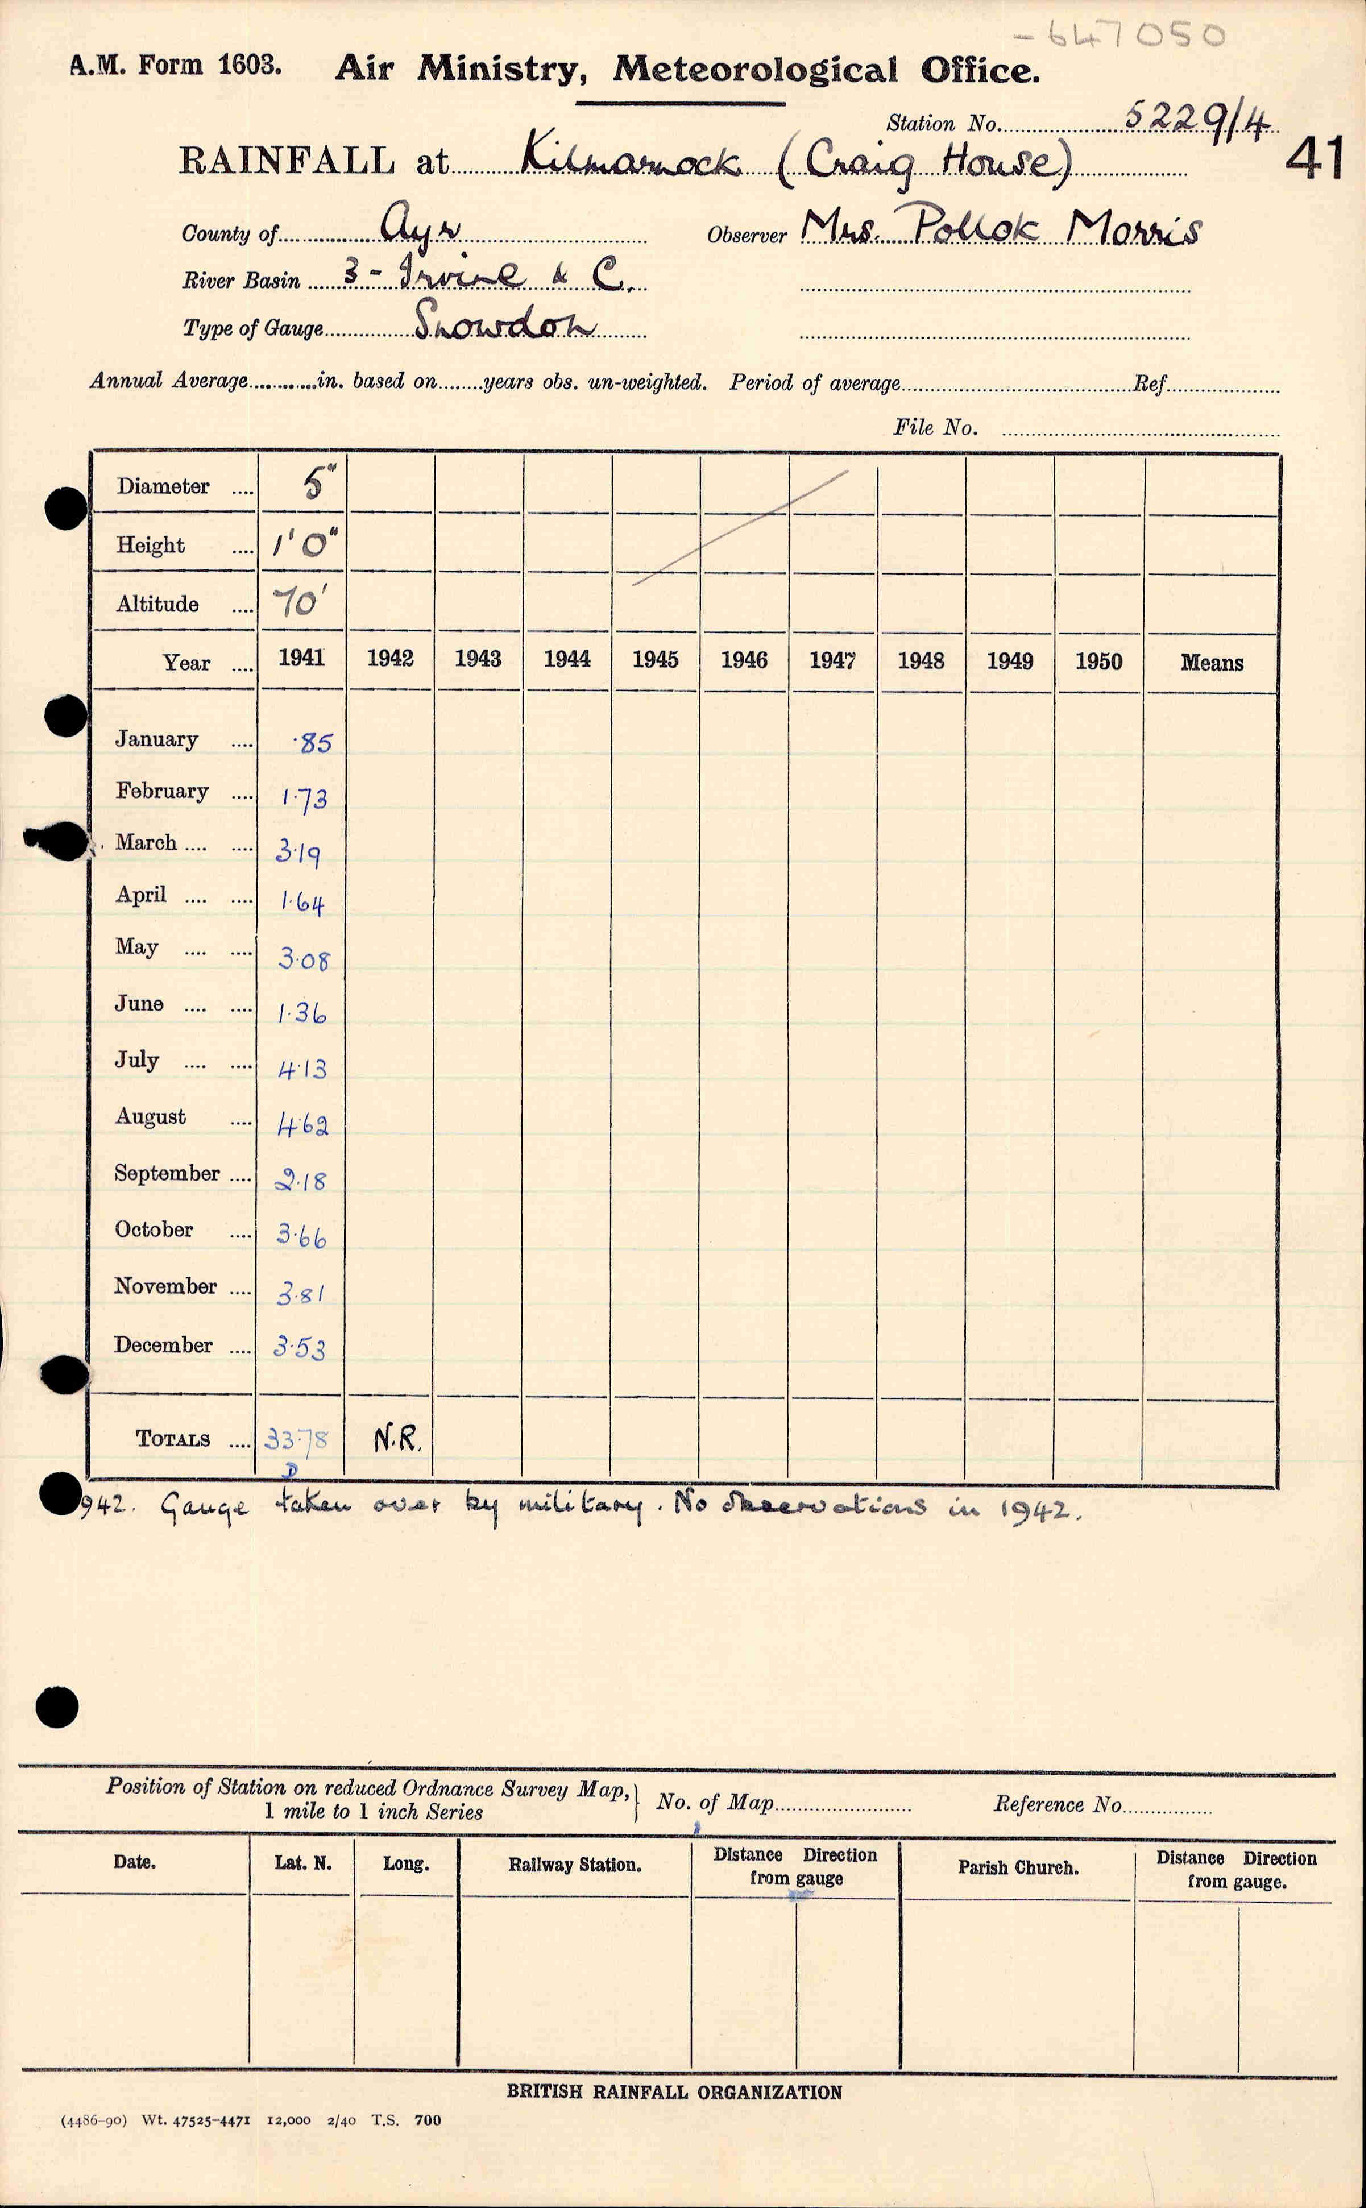 -647050
A.M. Form 1603. Air Ministry, Meteorological Office.
Station No. 5229/4
RAINFALL at Kilmarnock (Craig House) 41
County of Ayr Observer Mrs. Pollok Morris
River Basin 3 - Irvine & C.
Type of Gauge Snowdon
Annual Average..........in. based on........years obs. un-weighted. Period of average..........Ref..........
File No. ..........
Diameter .... 5"
Height .... 1'0"
Altitude .... 70'
Year .... 1941 1942 1943 1944 1945 1946 1947 1948 1949 1950 Means
January .... ·85
February .... 1·73
March .... .... 3·19
April .... .... 1·64
May .... .... 3·08
June .... .... 1·36
July .... .... 4·13
August .... 4·62
September .... 2·18
October .... 3·66
November .... 3·81
December .... 3·53
TOTALS .... 33·78 N.R.
D
942. Gauge taken over by military. No observations in 1942.
Position of Station on reduced Ordnance Survey Map, } No. of Map.......... Reference No..........
1 mile to 1 inch Series
Date. Lat. N. Long. Railway Station. Distance Direction from gauge Parish Church. Distance Direction from gauge.
BRITISH RAINFALL ORGANIZATION
(4486-90) Wt. 47525-4471 12,000 2/40 T.S. 700